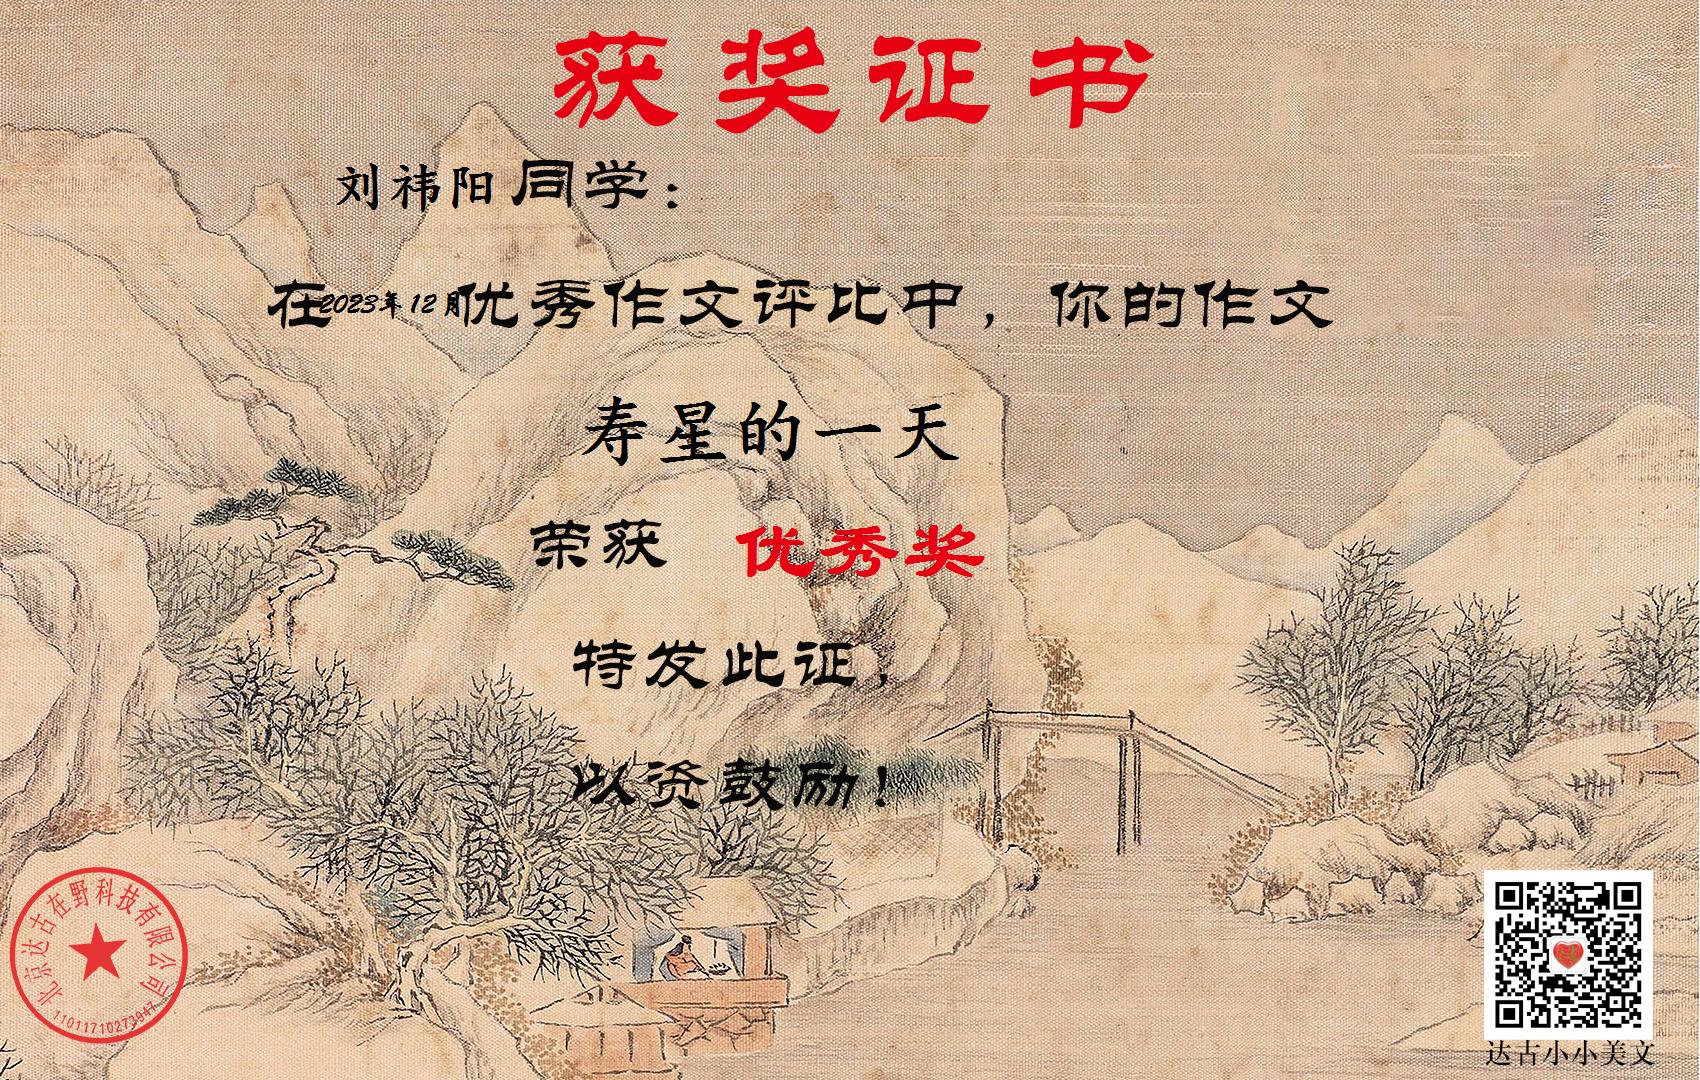 获奖证书
刘祎阳同学：
在2023年12月优秀作文评比中，你的作文
寿星的一天
荣获 优秀奖
特发此证，
以资鼓励！
北京达古在野科技有限公司
11011710273947
达古小小美文